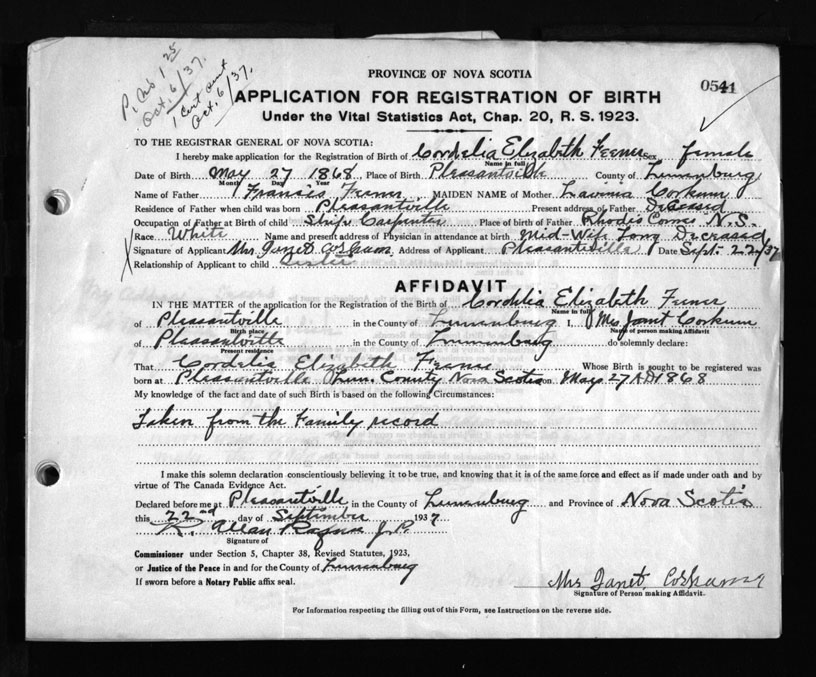 P. No 1 25
Oct. 6/37.
1 Cert sent
Oct. 6/37.
PROVINCE OF NOVA SCOTIA
0541
APPLICATION FOR REGISTRATION OF BIRTH
Under the Vital Statistics Act, Chap. 20, R. S. 1923.
TO THE REGISTRAR GENERAL OF NOVA SCOTIA:
I hereby make application for the Registration of Birth of Cordelia Elizabeth Feener Sex female
Name in full
Date of Birth May 27 1868 Place of Birth Pleasantville County of Lunenburg
Month Day Year
Name of Father Francis Feener MAIDEN NAME of Mother Lavinia Corkum
Residence of Father when child was born Pleasantville Present address of Father Deceased
Occupation of Father at Birth of child Ship Carpenter Place of birth of Father Rhodes Corner N.S.
Race White Name and present address of Physician in attendance at birth Mid-Wife Long Deceased
Signature of Applicant Mrs Janet Corkum Address of Applicant Pleasantville Date Sept. 22/37
Relationship of Applicant to child sister
AFFIDAVIT
IN THE MATTER of the application for the Registration of the Birth of Cordelia Elizabeth Feener
Name in full
of Pleasantville in the County of Lunenburg I, Mrs Janet Corkum
Birth place Name of person making Affidavit
of Pleasantville in the County of Lunenburg do solemnly declare:
Present residence
That Cordelia Elizabeth Feener Whose Birth is sought to be registered was
born at Pleasantville Lun. County Nova Scotia on May 27 AD 1868
My knowledge of the fact and date of such Birth is based on the following Circumstances:
Taken from the Family record
I make this solemn declaration conscientiously believing it to be true, and knowing that it is of the same force and effect as if made under oath and by
virtue of The Canada Evidence Act.
Declared before me at Pleasantville in the County of Lunenburg and Province of Nova Scotia
this 22nd day of September 1937
R. Allan J.P.
Signature of
Commissioner under Section 5, Chapter 38, Revised Statutes, 1923,
or Justice of the Peace in and for the County of Lunenburg
If sworn before a Notary Public affix seal.
Mrs Janet Corkum
Signature of Person making Affidavit.
For Information respecting the filling out of this Form, see Instructions on the reverse side.